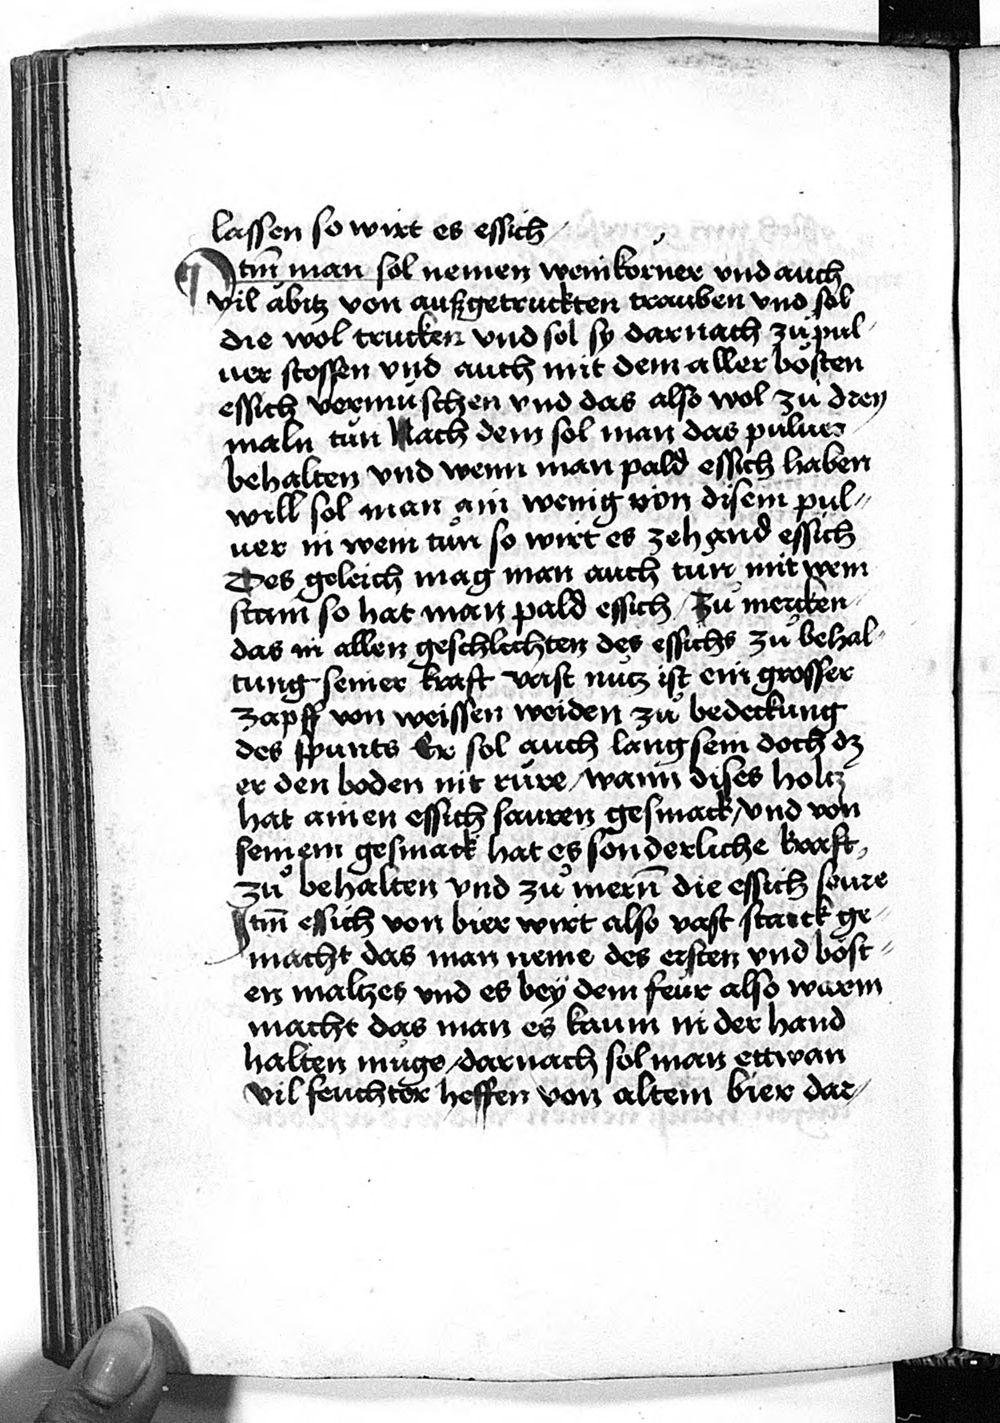 lassen so wirt es essich /
Itm̄ man sol nemen weinkörner vnd auch
vil åbitz von außgetruckten trauben vnd sol
die wol trucken vnd sol sy darnach zů pul⸗
uer stossen vnd auch mit dem aller bösten
essich vermüschen vnd das also wol zů drey
maln tůn Nach dem sol man das puluer
behalten vnd wenn man pald essich haben
will sol man ain wenig von disem pul⸗
uer in wein tůn so wirt es zehand essich
Des geleich mag man auch tůn mit wein
stain so hat man pald essich / Zů mercken
das in allen geschlechten des essichs zů behal⸗
tung seiner kraft vast nütz ist ein grosser
zapff von weissen weiden zů bedeckung
des spunts Er sol auch lang sein doch dz
er den boden nit rüre / wann dises holtz
hat ainen essich sauren gesmack / vnd von
seinem gesmack hat es sonderliche kraft /
zů behalten vnd zů mern̄ die essich seure
Itm̄ essich von bier wirt also vast starck ge⸗
macht das man neme des ersten vnd böst⸗
en maltzes vnd es bey dem feur also warm
macht das man es kaum in der hand
halten müge / darnach sol man ettwan
vil feuchter heffen von altem bier dar⸗